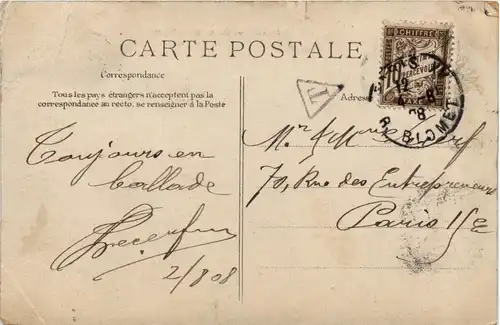 CARTE POSTALE
Correspondance
Tous les pays étrangers n'acceptent pas la
correspondance au recto, se renseigner à la Poste
Adresse
Toujours en
ballade
2/8 08
Mr & M
70, Rue des Entrepreneurs
Paris 15e
CHIFFRE
PERCEVOIR
10
T
R. BLOMET
08